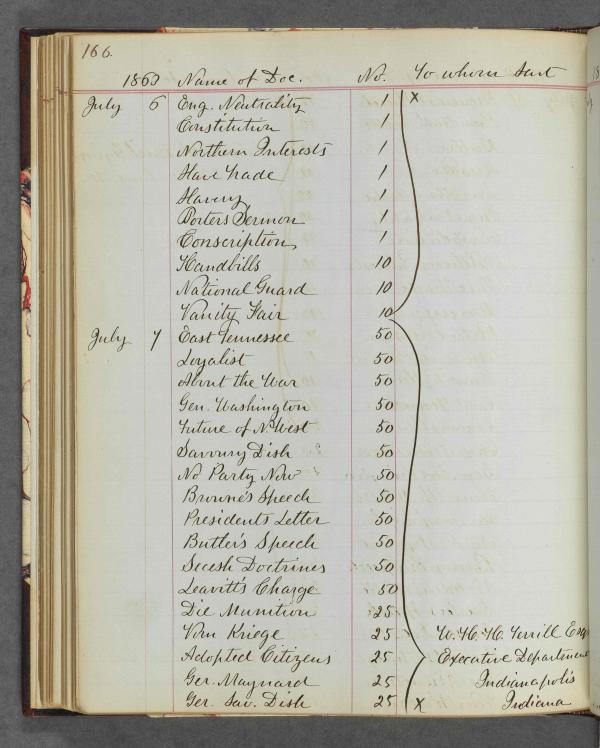 166.
1863 Name of Doc. No. To whom Sent
July 6 Eng. Neutrality 1 x
Constitution 1
Northern Interests 1
Slave Trade 1
Slavery 1
Porters Sermon 1
Conscription 1
Handbills 10
National Guard 10
Vanity Fair 10
July 7 East Tennessee 50
Loyalist 50
About the War 50
Gen. Washington 50
Future of N. West 50
Savoury Dish 50
No Party Now 50
Browne's Speech 50
Presidents Letter 50
Butler's Speech 50
Secesh Doctrines 50
Leavitt's Charge 50
Die Munition 25
Vom Kriege 25 W. H. H. Terrill Esq
Adopted Citizens 25 Executive Department
Ger. Maynard 25 Indianapolis
Ger. Sav. Dish 25 x Indiana